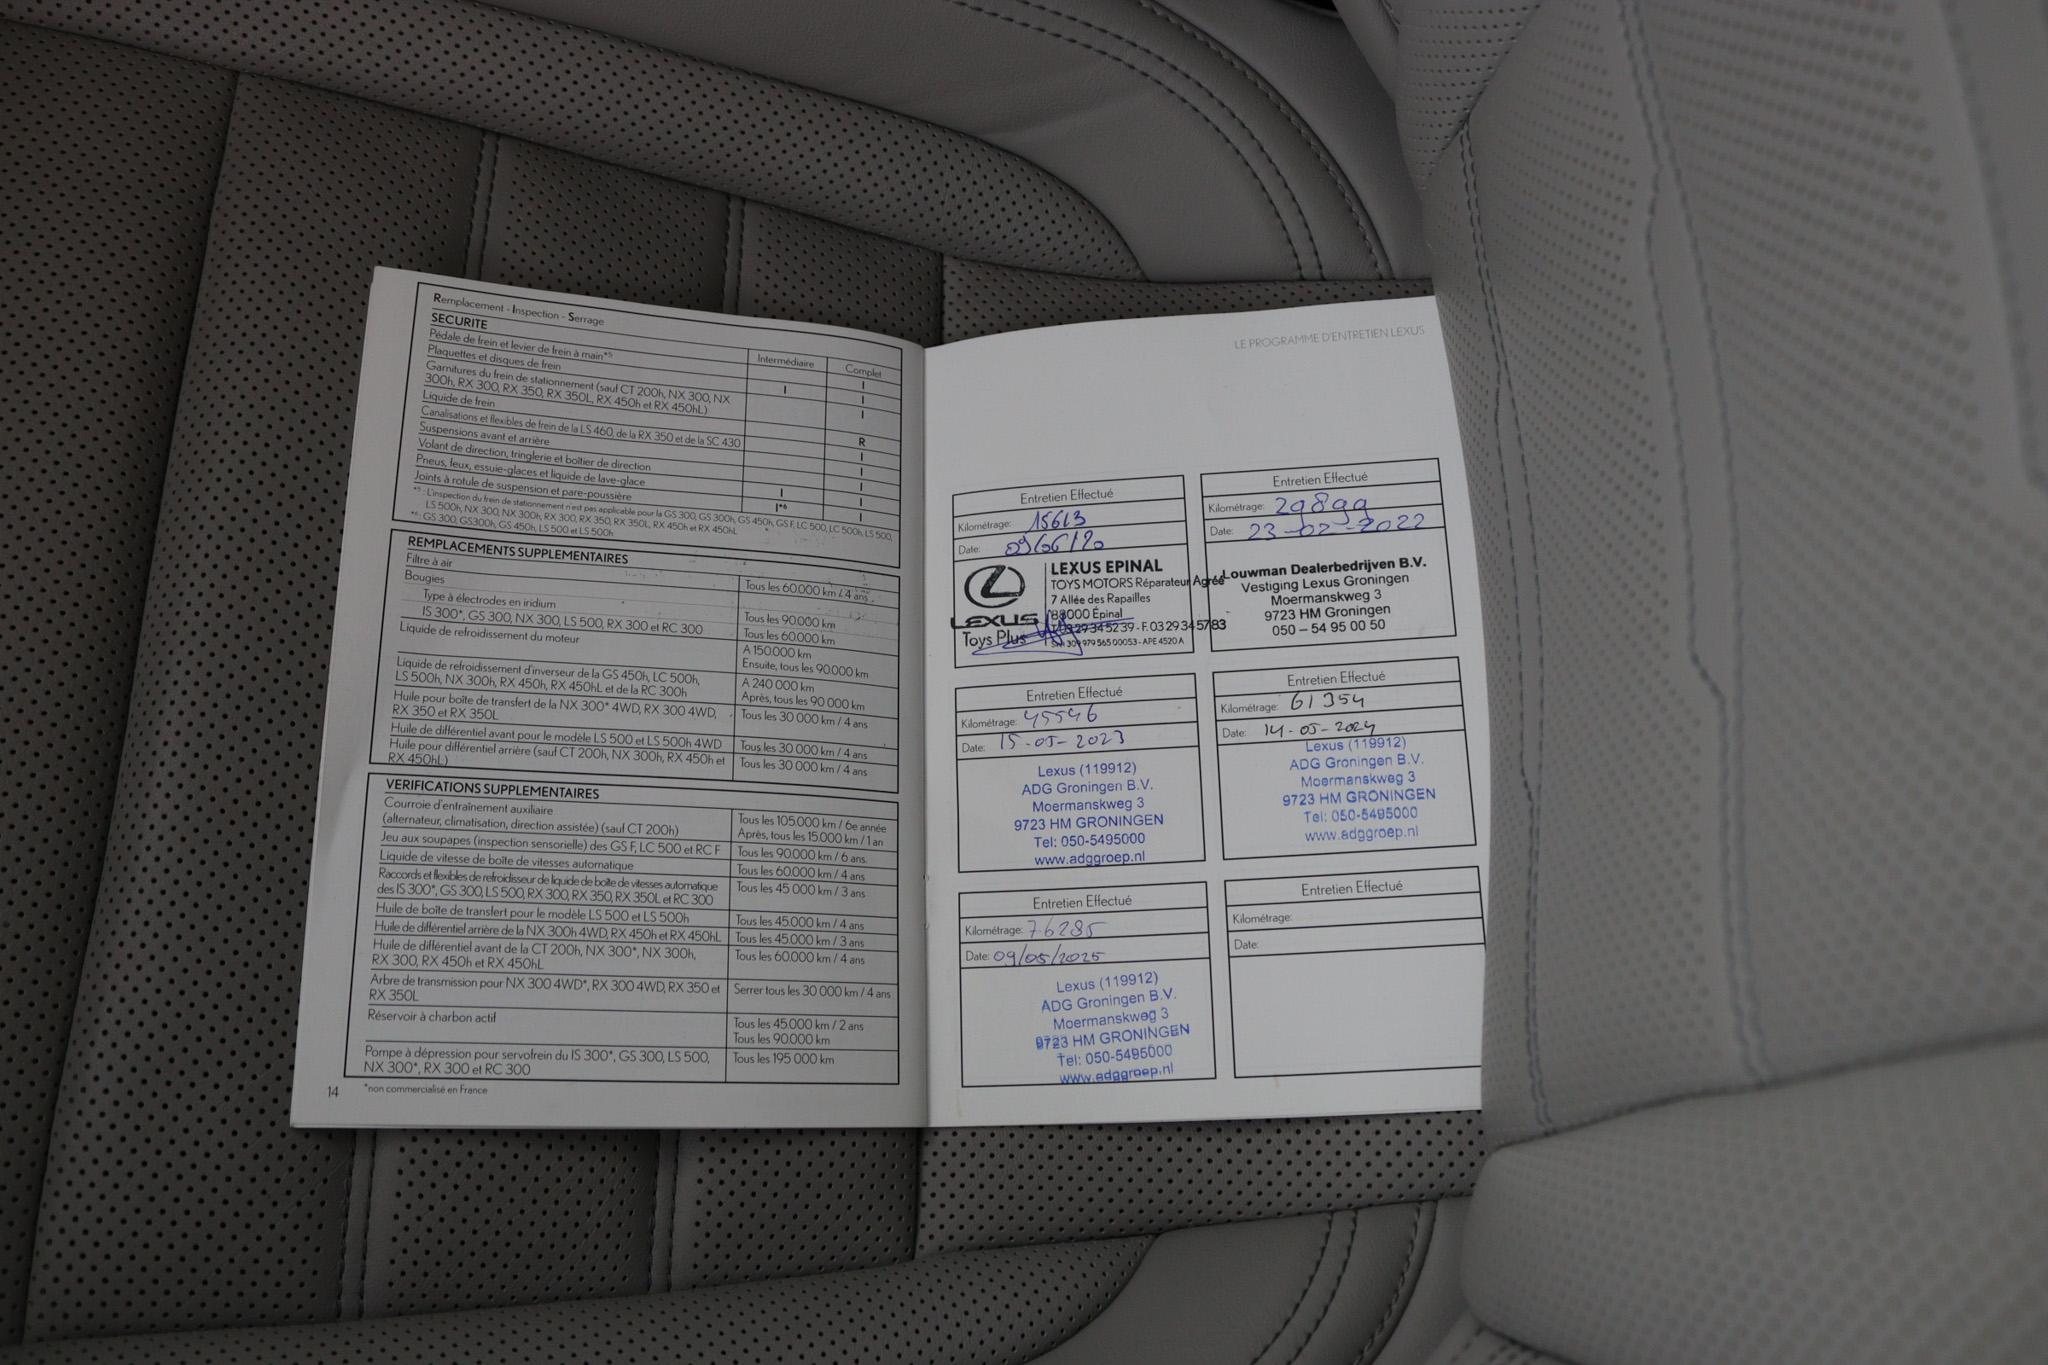 Remplacement - Inspection - Serrage
SECURITE
Intermédiaire
Complet
Pédale de frein et levier de frein à main*⁵
I
Plaquettes et disques de frein
I
I
Garnitures du frein de stationnement (sauf CT 200h, NX 300, NX
300h, RX 300, RX 350, RX 350L, RX 450h et RX 450hL)
I
Liquide de frein
R
Canalisations et flexibles de frein de la LS 460, de la RX 350 et de la SC 430
I
Suspensions avant et arrière
I
Volant de direction, tringlerie et boîtier de direction
I
Pneus, feux, essuie-glaces et liquide de lave-glace
I
I
Joints à rotule de suspension et pare-poussière
I*⁶
I
*⁵ : L'inspection du frein de stationnement n'est pas applicable pour la GS 300, GS 300h, GS 450h, GS F, LC 500, LC 500h, LS 500,
LS 500h, NX 300, NX 300h, RX 300, RX 350, RX 350L, RX 450h et RX 450hL
*⁶ : GS 300, GS300h, GS 450h, LS 500 et LS 500h
REMPLACEMENTS SUPPLEMENTAIRES
Filtre à air
Tous les 60.000 km / 4 ans
Bougies
Type à électrodes en iridium
Tous les 90.000 km
IS 300*, GS 300, NX 300, LS 500, RX 300 et RC 300
Tous les 60.000 km
Liquide de refroidissement du moteur
A 150.000 km
Ensuite, tous les 90.000 km
Liquide de refroidissement d'inverseur de la GS 450h, LC 500h,
LS 500h, NX 300h, RX 450h, RX 450hL et de la RC 300h
A 240 000 km
Après, tous les 90 000 km
Huile pour boîte de transfert de la NX 300* 4WD, RX 300 4WD,
RX 350 et RX 350L
Tous les 30 000 km / 4 ans
Huile de différentiel avant pour le modèle LS 500 et LS 500h 4WD
Tous les 30 000 km / 4 ans
Huile pour différentiel arrière (sauf CT 200h, NX 300h, RX 450h et
RX 450hL)
Tous les 30 000 km / 4 ans
VERIFICATIONS SUPPLEMENTAIRES
Courroie d'entraînement auxiliaire
(alternateur, climatisation, direction assistée) (sauf CT 200h)
Tous les 105.000 km / 6e année
Après, tous les 15.000 km / 1 an
Jeu aux soupapes (inspection sensorielle) des GS F, LC 500 et RC F
Tous les 90.000 km / 6 ans.
Liquide de vitesse de boîte de vitesses automatique
Tous les 60.000 km / 4 ans
Raccords et flexibles de refroidisseur de liquide de boîte de vitesses automatique
des IS 300*, GS 300, LS 500, RX 300, RX 350, RX 350L et RC 300
Tous les 45 000 km / 3 ans
Huile de boîte de transfert pour le modèle LS 500 et LS 500h
Tous les 45.000 km / 4 ans
Huile de différentiel arrière de la NX 300h 4WD, RX 450h et RX 450hL
Tous les 45.000 km / 3 ans
Huile de différentiel avant de la CT 200h, NX 300*, NX 300h,
RX 300, RX 450h et RX 450hL
Tous les 60.000 km / 4 ans
Arbre de transmission pour NX 300 4WD*, RX 300 4WD, RX 350 et
RX 350L
Serrer tous les 30 000 km / 4 ans
Réservoir à charbon actif
Tous les 45.000 km / 2 ans
Tous les 90.000 km
Pompe à dépression pour servofrein du IS 300*, GS 300, LS 500,
NX 300*, RX 300 et RC 300
Tous les 195 000 km
14
*non commercialisé en France
LE PROGRAMME D'ENTRETIEN LEXUS
Entretien Effectué
Kilométrage: 15613
Date: 09/06/20
LEXUS
Toys Plus
LEXUS EPINAL
TOYS MOTORS Réparateur Agréé
7 Allée des Rapailles
88000 Épinal
T. 03 29 34 52 39 - F. 03 29 34 57 83
309 979 565 00053 - APE 4520 A
Entretien Effectué
Kilométrage: 29899
Date: 23-02-2022
Louwman Dealerbedrijven B.V.
Vestiging Lexus Groningen
Moermanskweg 3
9723 HM Groningen
050 – 54 95 00 50
Entretien Effectué
Kilométrage: 45546
Date: 15-05-2023
Lexus (119912)
ADG Groningen B.V.
Moermanskweg 3
9723 HM GRONINGEN
Tel: 050-5495000
www.adggroep.nl
Entretien Effectué
Kilométrage: 61354
Date: 14-05-2024
Lexus (119912)
ADG Groningen B.V.
Moermanskweg 3
9723 HM GRONINGEN
Tel: 050-5495000
www.adggroep.nl
Entretien Effectué
Kilométrage: 76285
Date: 09/05/2025
Lexus (119912)
ADG Groningen B.V.
Moermanskweg 3
9723 HM GRONINGEN
Tel: 050-5495000
www.adggroep.nl
Entretien Effectué
Kilométrage:
Date: